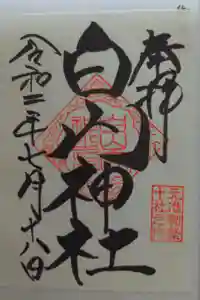 奉拝
白山神社
令和二年七月十八日